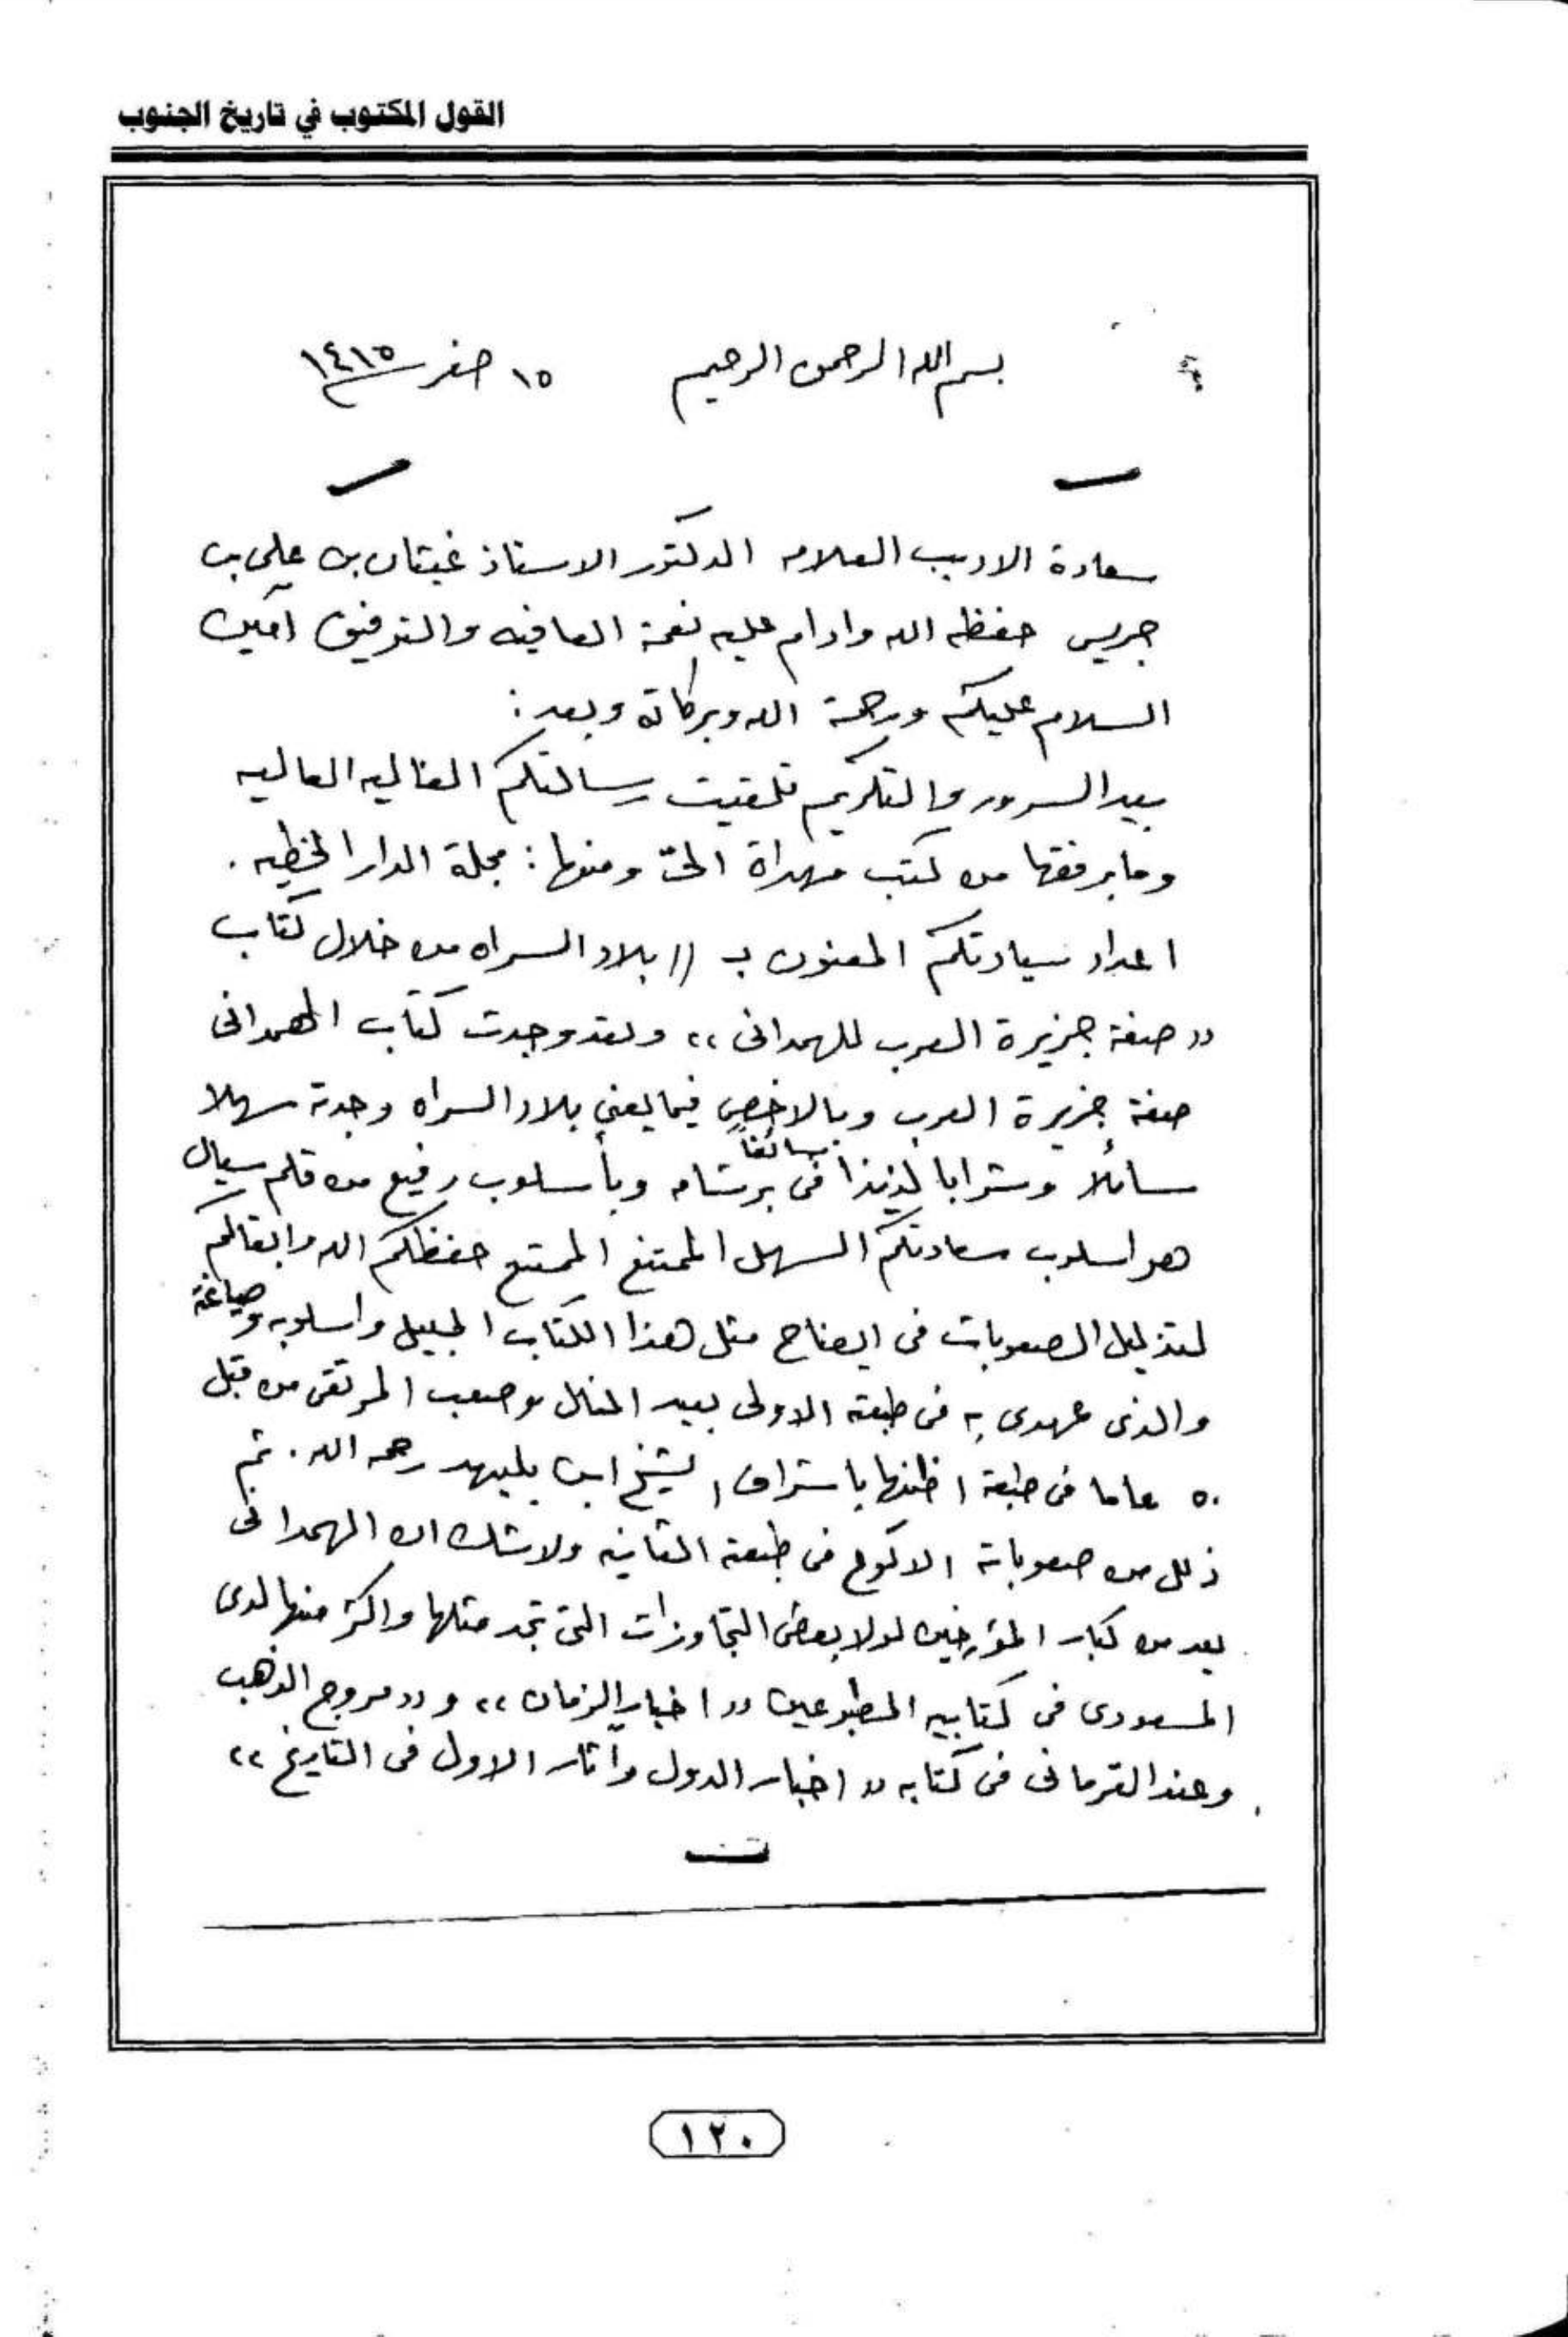 القول المكتوب في تاريخ الجنوب
بسم الله الرحمن الرحيم ١٥ صفر ١٤١٥
سعادة الاديب العلامه الدكتور الاستاذ غيثان بن علي بن
جريس حفظه الله وادام عليه نعمة العافيه والتوفيق آمين
السلام عليكم ورحمة الله وبركاته وبعد :
بيد السرور والتكريم تلقيت رسالتكم الغاليه العاليه
وما برفقها من كتب مهداة الىّ ومنها : مجلة الدار .
اعداد سيادتكم المعنون بـ (( بلاد السراه من خلال كتاب
" صفة جزيرة العرب للهمدانى " ولقد وجدت كتاب الهمدانى
صفة جزيرة العرب وبالاخص فيما يعني بلاد السراه وجدته سهلا
سائلاً وشرابا لذيذا سائغاً فى وبأسلوب رفيع من قلم سيال
هو اسلوب سعادتكم السهل الممتنع الممتع حفظكم الله وابقاكم
لتذليل الصعوبات فى ايضاح مثل هذا الكتاب الجليل واسلوبه وصياغته
والذى عهدى به فى طبعته الاولى بعيد المنال وصعب المرتقى من قبل
٥٠ عاما فى طبعة اظنها باشراف الشيخ ابن بليهد رحمه الله . ثم
ذلل من صعوباته الاكوع فى طبعته الثانيه ولاشك ان الهمدانى
يعد من كبار المؤرخين لولا بعض التجاوزات التى تجد مثلها واكثر منها لدى
المسعودى فى كتابيه المطبوعين " اخبار الزمان " و " مروج الذهب
وعند القرمانى فى كتابه " اخبار الدول وآثار الاول فى التاريخ "
١٢٠